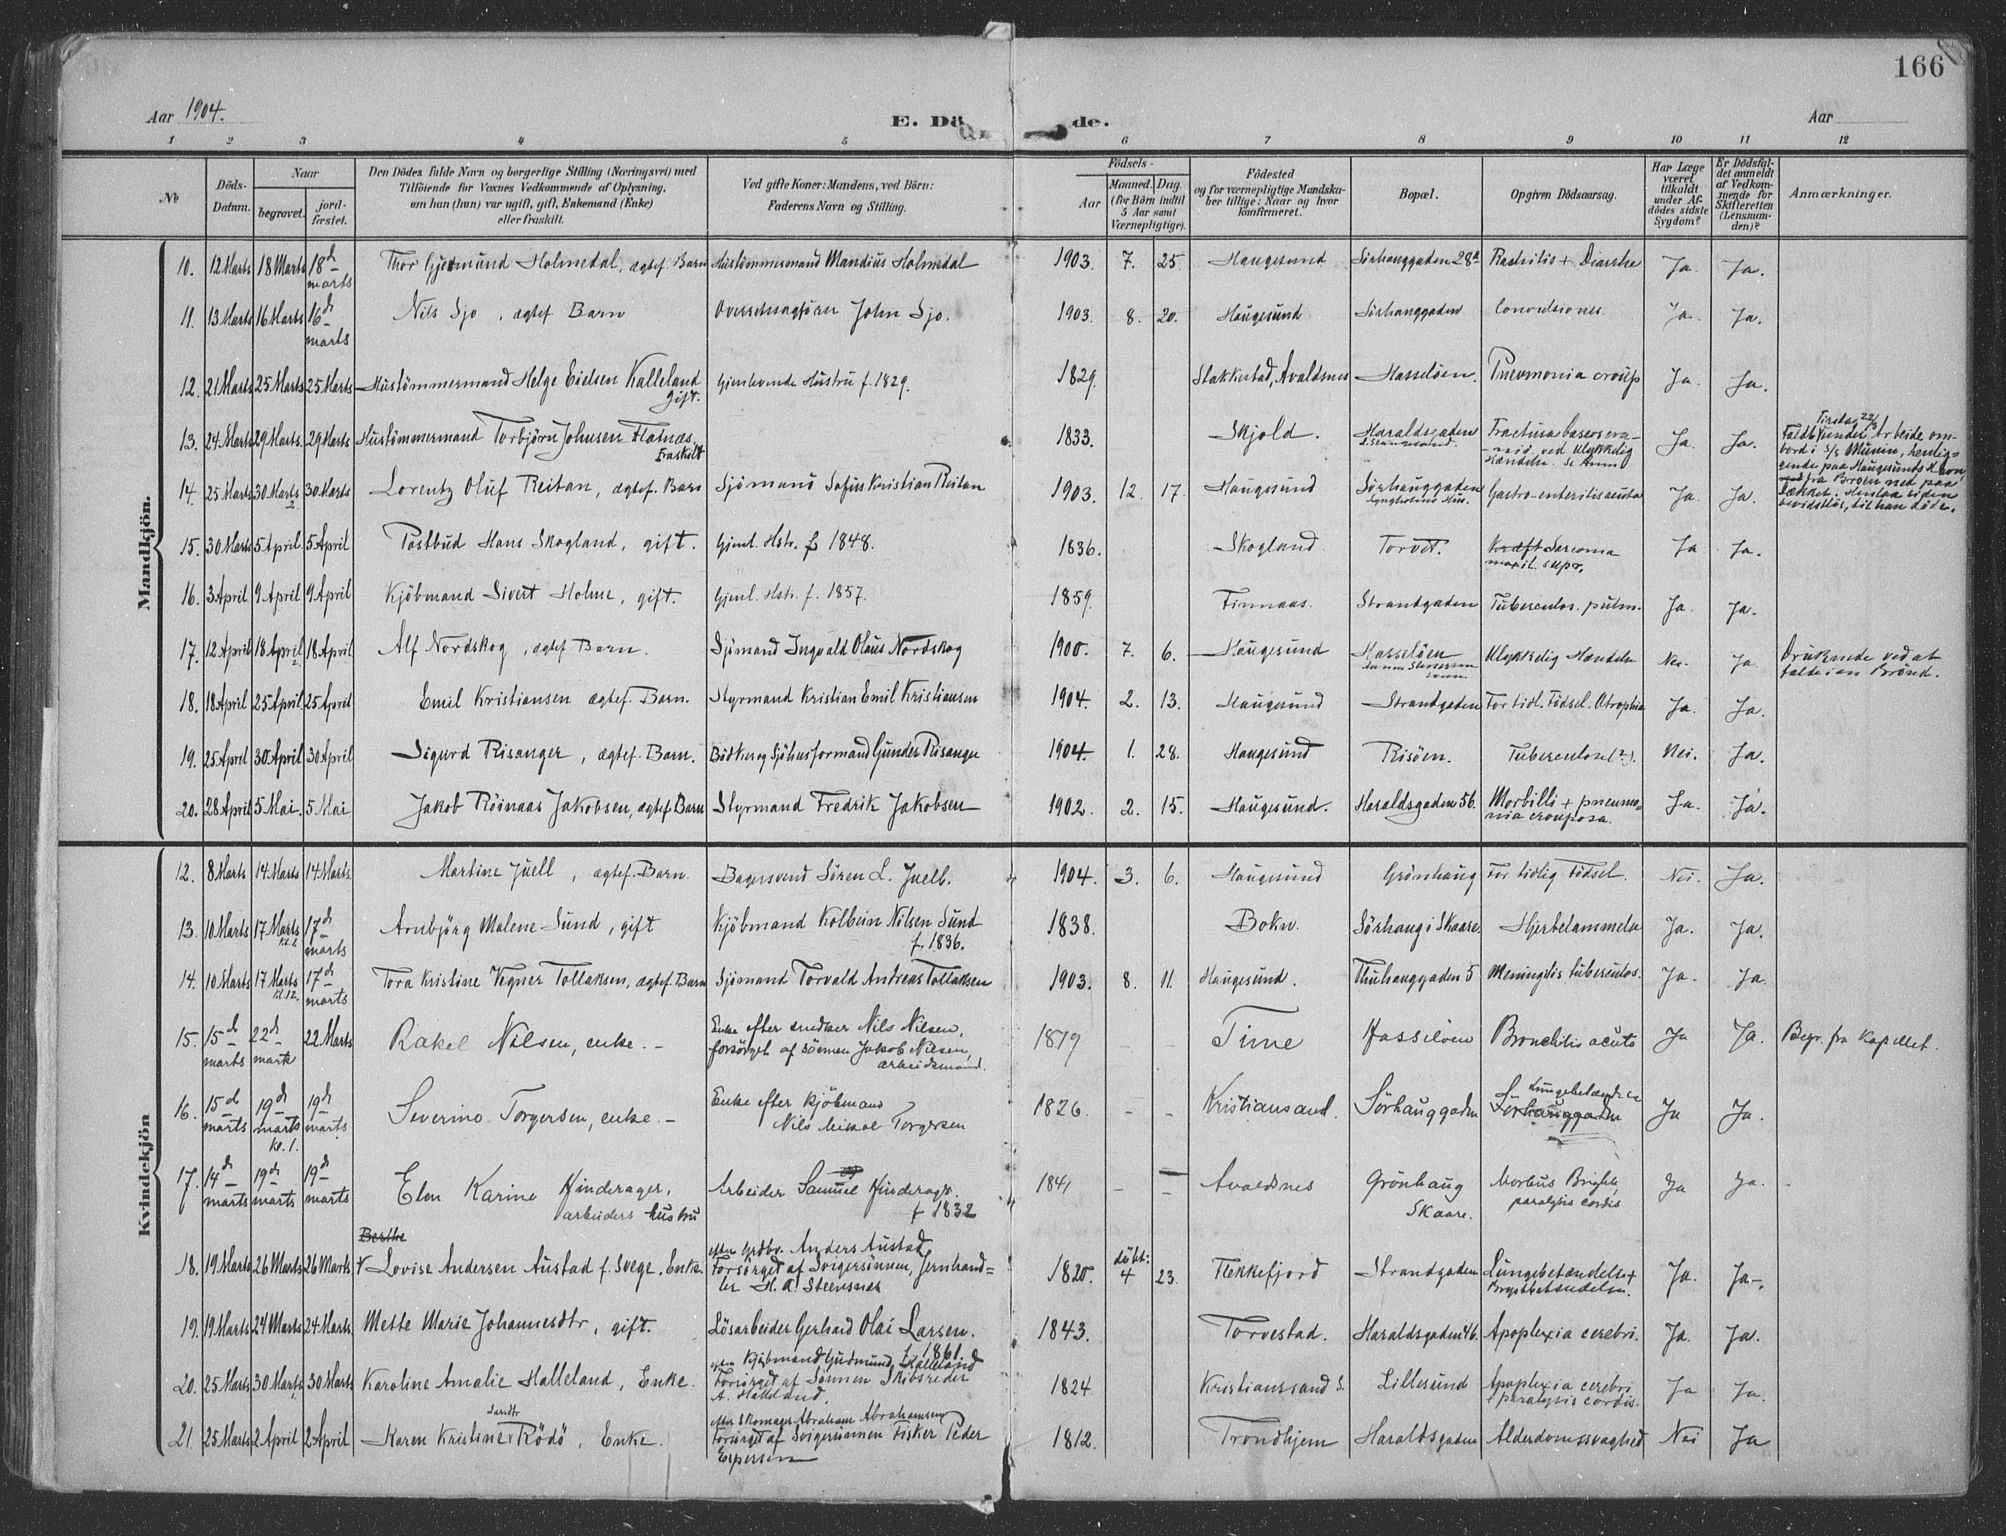 166
Aar 1904.
E. Dö de.
Aar
1 2 3 4 5 6 7 8 9 10 11 12
No
Döds-Datum.
Naar
begravet.
jord-fæstet.
Den Dödes fulde Navn og borgerlige Stilling (Næringsvei) med
Tilföiende for Voxnes Vedkommende af Oplysning,
om han (hun) var ugift, gift, Enkemand (Enke)
eller fraskilt.
Ved gifte Koner: Mandens, ved Börn:
Faderens Navn og Stilling.
Födsels-
Aar
Maaned. Dag.
(for Börn indtil
5 Aar samt
Værnepligtige).
Födested
og for værnepligtige Mandska-
ber tillige: Naar og hvor
konfirmeret.
Bopæl.
Opgiven Dödsaarsag.
Har Læge
været
tilkaldt
under Af-
dödes sidste
Sygdom?
Er Dödsfal-
det anmeldt
af Vedkom-
mende for
Skifteretten
(Lensman-
den)?
Anmærkninger.
Mandkjön.
10. 12 Marts 18 Marts 18d marts Thor Gjermund Holmedal, ægtef. Barn Hustömmermand Mandius Holmedal 1903. 7. 25. Haugesund Sörhauggaden 28a Rachitis + Diarrhe Ja. Ja.
11. 13 Marts 16 Marts 16d marts Nils Sjo, ægtef Barn John Sjo. 1903. 8. 20. Haugesund Sörhauggaden Convulsiones. Ja. Ja.
12. 21 Marts 25 Marts 25 Marts Hustömmermand Helge Eielsen Kalleland gift. Gjenlevende Hustru f. 1829. 1829. Stakkestad, Avaldsnes Hasselöen. Pneumonia croup Ja. Ja.
13. 24 Marts 29 Marts. 29 Marts Hustömmermand Torbjörn Johnsen Flatnæs. Fraskilt 1833. Skjold. Haraldsgaden Fractura baseos cra- nii ved Ulykkelig Hændelse. Se Anm Ja. Ja. Tirsdag 22/3 Faldt under Arbeide om- bord i S/S Munin, henlig- gende paa Haugesunds Havn, fra Broen ned paa Dækket. Henlaa siden bevidstlös, til han döde.
14. 25 Marts 30 Marts 2 30 Marts Lorentz Oluf Reitan, ægtef. Barn Sjömand Sofus Kristian Reitan 1903. 12. 17. Haugesund Sörhauggaden Hus. Gastro-enteritis acuta Ja. Ja.
15. 30 Marts 5 April 5 April Postbud Hans Skogland, gift. Gjenl. Hstr. f 1848. 1836. Skogland Torvet. Kræft Sarcoma maxil. supr. Ja Ja.
16. 3 April 9 April 9 April Kjöbmand Sivert Holme, gift. Gjenl. Hstr. f. 1857. 1859. Finnaas. Strandgaden Tuberculos. pulm. Ja. Ja.
17. 12 April 18 April 18 April Alf Nordskog, ægtef. Barn. Sjömand Ingvald Olaus Nordskog 1900. 7. 6. Haugesund Hasselöen Ulykkelig Hændelse Nei. Ja. Druknede ved at falde i en Brönd.
18. 18 April 25 April 25 April Emil Kristiansen ægtef. Barn. Styrmand Kristian Emil Kristiansen 1904. 2. 13. Haugesund Strandgaden For tidl. Födsel. Atrophia Ja. Ja.
19. 25 April 30 April 30 April Sigurd Risanger, ægtef. Barn. Bödker og Sjöhusformand Gunder Risanger 1904. 1. 28. Haugesund Risöen. Tuberculose (?). Nei. Ja.
20. 28 April 5 Mai. 5 Mai Jakob Röinaas Jakobsen, ægtef Barn Styrmand Fredrik Jakobsen 1902. 2. 15. Haugesund. Haraldsgaden 56. Morbilli + pneumo- nia crouposa. Ja. Ja.
Kvindekjön
12. 8 Marts 14 Marts 14 Marts Martine Juell, ægtef. Barn. Bagersvend Sören L. Juell. 1904. 3. 6. Haugesund Grönhaug For tidlig Födsel. Nei. Ja.
13. 10 Marts 17 Marts 17d marts Arnbjörg Malene Sund, gift Kjöbmand Kolbein Nilsen Sund f. 1836. 1838. Bokn. Sörhaug i Skaare. Hjertelammelse Ja. Ja.
14. 10 Marts 17 Marts kl. 12. 17d marts Tora Kristine Vegner Tollaksen, ægtef. Barn Sjömand Torvald Andreas Tollaksen 1903. 8. 11. Haugesund. 5 Meningitis tuberculos. Ja. Ja.
15. 15d marts 22d marts 22 Marts Rakel Nilsen, enke. – Enke efter snedker Nils Nilsen, forsörget af sönnen Jakob Nilsen, arbeidsmand. 1819 – – Time Hasselöen Bronchitis acuta Ja Ja. Begr. fra Kapellet.
16. 15d marts 19d marts kl. 1. 19d marts Severine Torgersen, enke. – Enke efter Kjöbmand Nils Mikal Torgersen 1826. – – Kristiansand. Sörhauggaden Lungebetændelse Sörhauggaden Ja Ja.
17. 14d marts 19d marts 19d marts Elen Karine Hinderager, arbeiders hustru Arbeider Samuel Hinderager. f 1832 1841 – – Avaldsnes Grönhaug Skaare. Morbus Brightii, paralysis cordis Ja Ja.
18. 19 Marts 26 Marts 26 Marts Berthe Lovise Andersen Austad f. Svege. Enke. efter Grdbr. Anders Austad Forsörget af Svigersönnen, Jernhand= ler H. A. Steensnæs 1820. döbt: 4 23. Flekkefjord Strandgaden Lungebetændelse + Brystbetændelse. Ja. Ja.
19. 19 Marts 24 Marts 24 Marts Mette Marie Johannesdtr, gift. Lösarbeider Gerhard Olai Larsen. f. 1861. 1843. Torvestad. Haraldsgaden 46. Apoplexia cerebri. Ja. Ja.
20. 25 Marts 30 Marts 30 Marts Karoline Amalie Halleland, Enke. efter Kjöbmand Gudmund Halleland Forsörget af Sönnen Skibsreder A. Halleland. 1824 Kristianssand S. Lillesund Apoplexia cerebri + paralysis cordis. Ja Ja.
21. 25 Marts 2 April 2 April Karen Kristine Rödö, Enke. efter Skomager Abraham Abrahamsen Forsörget af Svigersönnen Fisker Peder Espersen 1812. Trondhjem Haraldsgaden Alderdomssvaghed Nei Ja